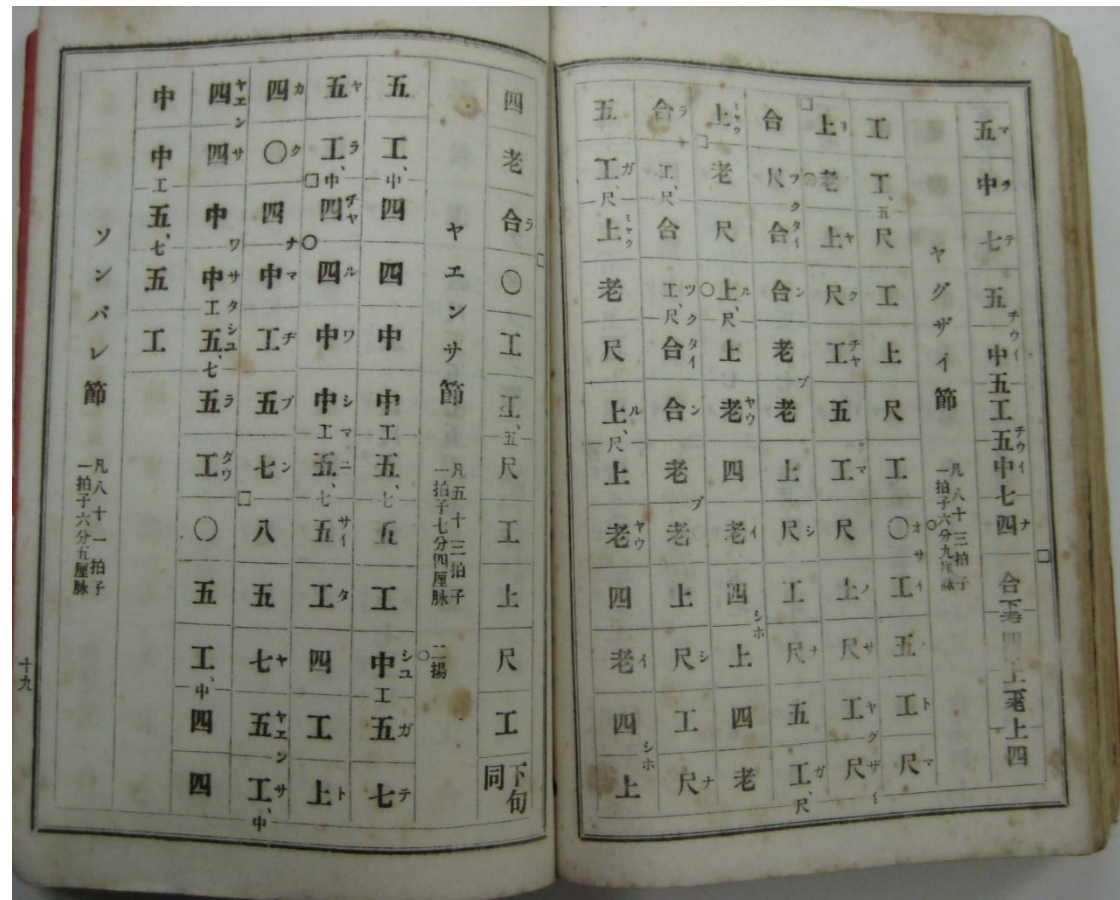 五マ 中ク 七テ 五 チウイ 中 五 工 五 チウイ 中 七 四ナ 合 下老 四 上 老 上 四
ヤグザイ節
凡八十三拍子
一拍子六分九厘脉
工 工、五 尺 工 上 尺 工 〇オサ 工イ 五 工ト 尺マ
上 老 上ヤ 尺ク 工チヤ 五 工マ 尺 上ノ 尺サ 工ヤグ 尺ザイ
合 尺ツク 合タイ 合ン 老ブ 老 上 尺シ 工 尺ナ 五 工ガ、尺
上ミヤウ 老 尺 〇上ル、尺 上 老ヤウ 四 老イ 四シホ 上 四 老
合ラ 工、尺 合 工ツク、尺 合タイ 合ン 老ブ 老 上 尺シ 工 尺ナ
五 工ガ、尺 上ミヤウ 老 尺 上ル、尺 上 老ヤウ 四 老イ 四シホ 上
四 老 合ラ 〇 工 工、五 尺 工 上 尺 工 下句同
ヤエンサ節
凡五十三拍子
一拍子七分四厘脉
二揚
五 工、中 四 四 中 中工 五、七 五 工 中シユ工 五ガ 七テ
五ヤ 工ラ、中 四チヤ 四ル 中ワ 中シマ工 五ニ、七 五サイ 工タ 四 工 上ト
四カ 〇ク 四ナ 中マ 工ヂ 五ブ 七ン 八 五 七ヤ 五ヤエン 工サ、中
四ヤエン 四サ 中ワ 中サタ工 五シユ、七 五ラ 工ダウ 〇 五 工、中 四 四
中 中工 五、七 五 工
ソンバレ節
凡八十一拍子
一拍子六分五厘脉
十九